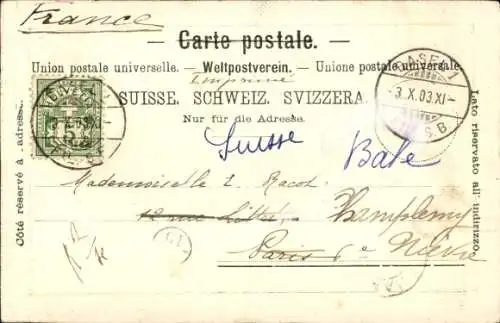 France
Carte postale.
Union postale universelle. — Weltpostverein. — Unione postale universale.
Imprimé
SUISSE. SCHWEIZ. SVIZZERA.
Nur für die Adresse.
Côté réservé à l'adresse.
Lato riservato all'indirizzo.
BASEL 1
3.X.03.XI
Suisse Bale
Mademoiselle L. Racot
12 rue Littré Champlemy
Paris 6e Nièvre